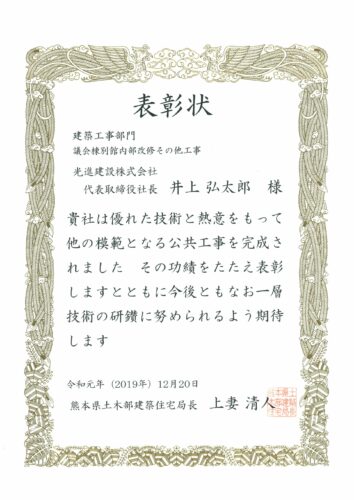 表彰状
建築工事部門
議会棟別館内部改修その他工事
光進建設株式会社
代表取締役社長　井上 弘太郎　様
貴社は優れた技術と熱意をもって
他の模範となる公共工事を完成さ
れました　その功績をたたえ表彰
しますとともに今後ともなお一層
技術の研鑽に努められるよう期待
します
令和元年（2019年）12月20日
熊本県土木部建築住宅局長　上妻 清人